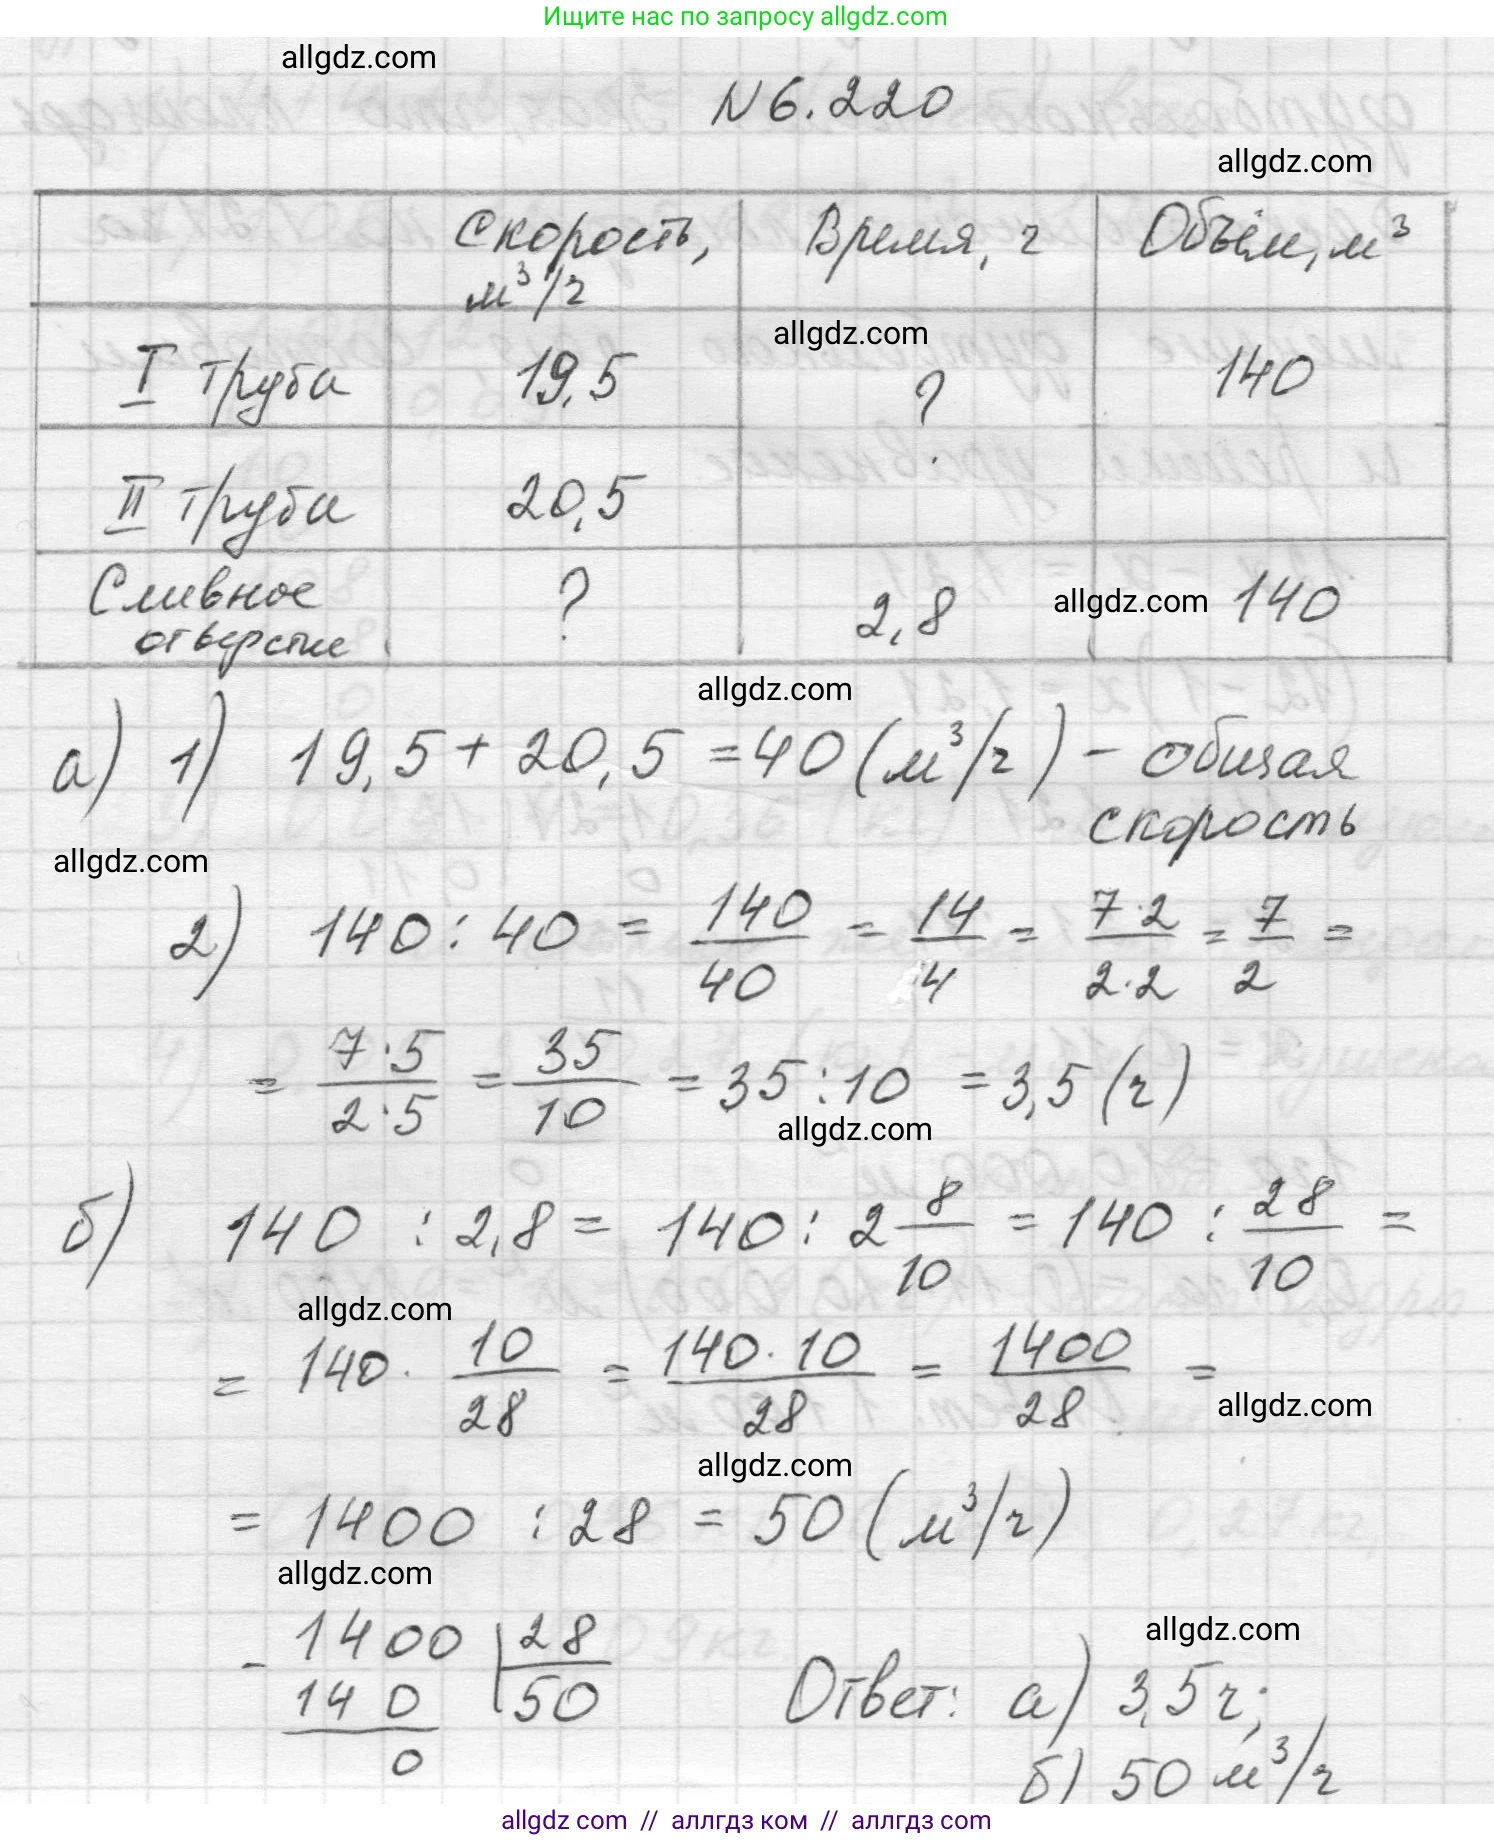 Ищите нас по запросу allgdz.com
allgdz.com
N 6.220
allgdz.com
Скорость, м³/ч Время, ч Объём, м³
allgdz.com
I труба 19,5 ? 140
II труба 20,5
Сливное отверстие ? 2,8 140
allgdz.com
allgdz.com
а) 1) 19,5 + 20,5 = 40 (м³/ч) – общая
скорость
allgdz.com
2) 140 : 40 = 140/40 = 14/4 = 7·2/2·2 = 7/2 =
= 7·5/2·5 = 35/10 = 35 : 10 = 3,5 (ч)
allgdz.com
б) 140 : 2,8 = 140 : 2 8/10 = 140 : 28/10 =
allgdz.com
= 140 · 10/28 = 140·10/28 = 1400/28 =
allgdz.com
allgdz.com
= 1400 : 28 = 50 (м³/ч)
allgdz.com
allgdz.com
- 1400 | 28
140 | 50
0
Ответ: а) 3,5 ч;
б) 50 м³/ч
allgdz.com // аллгдз ком // аллгдз.com